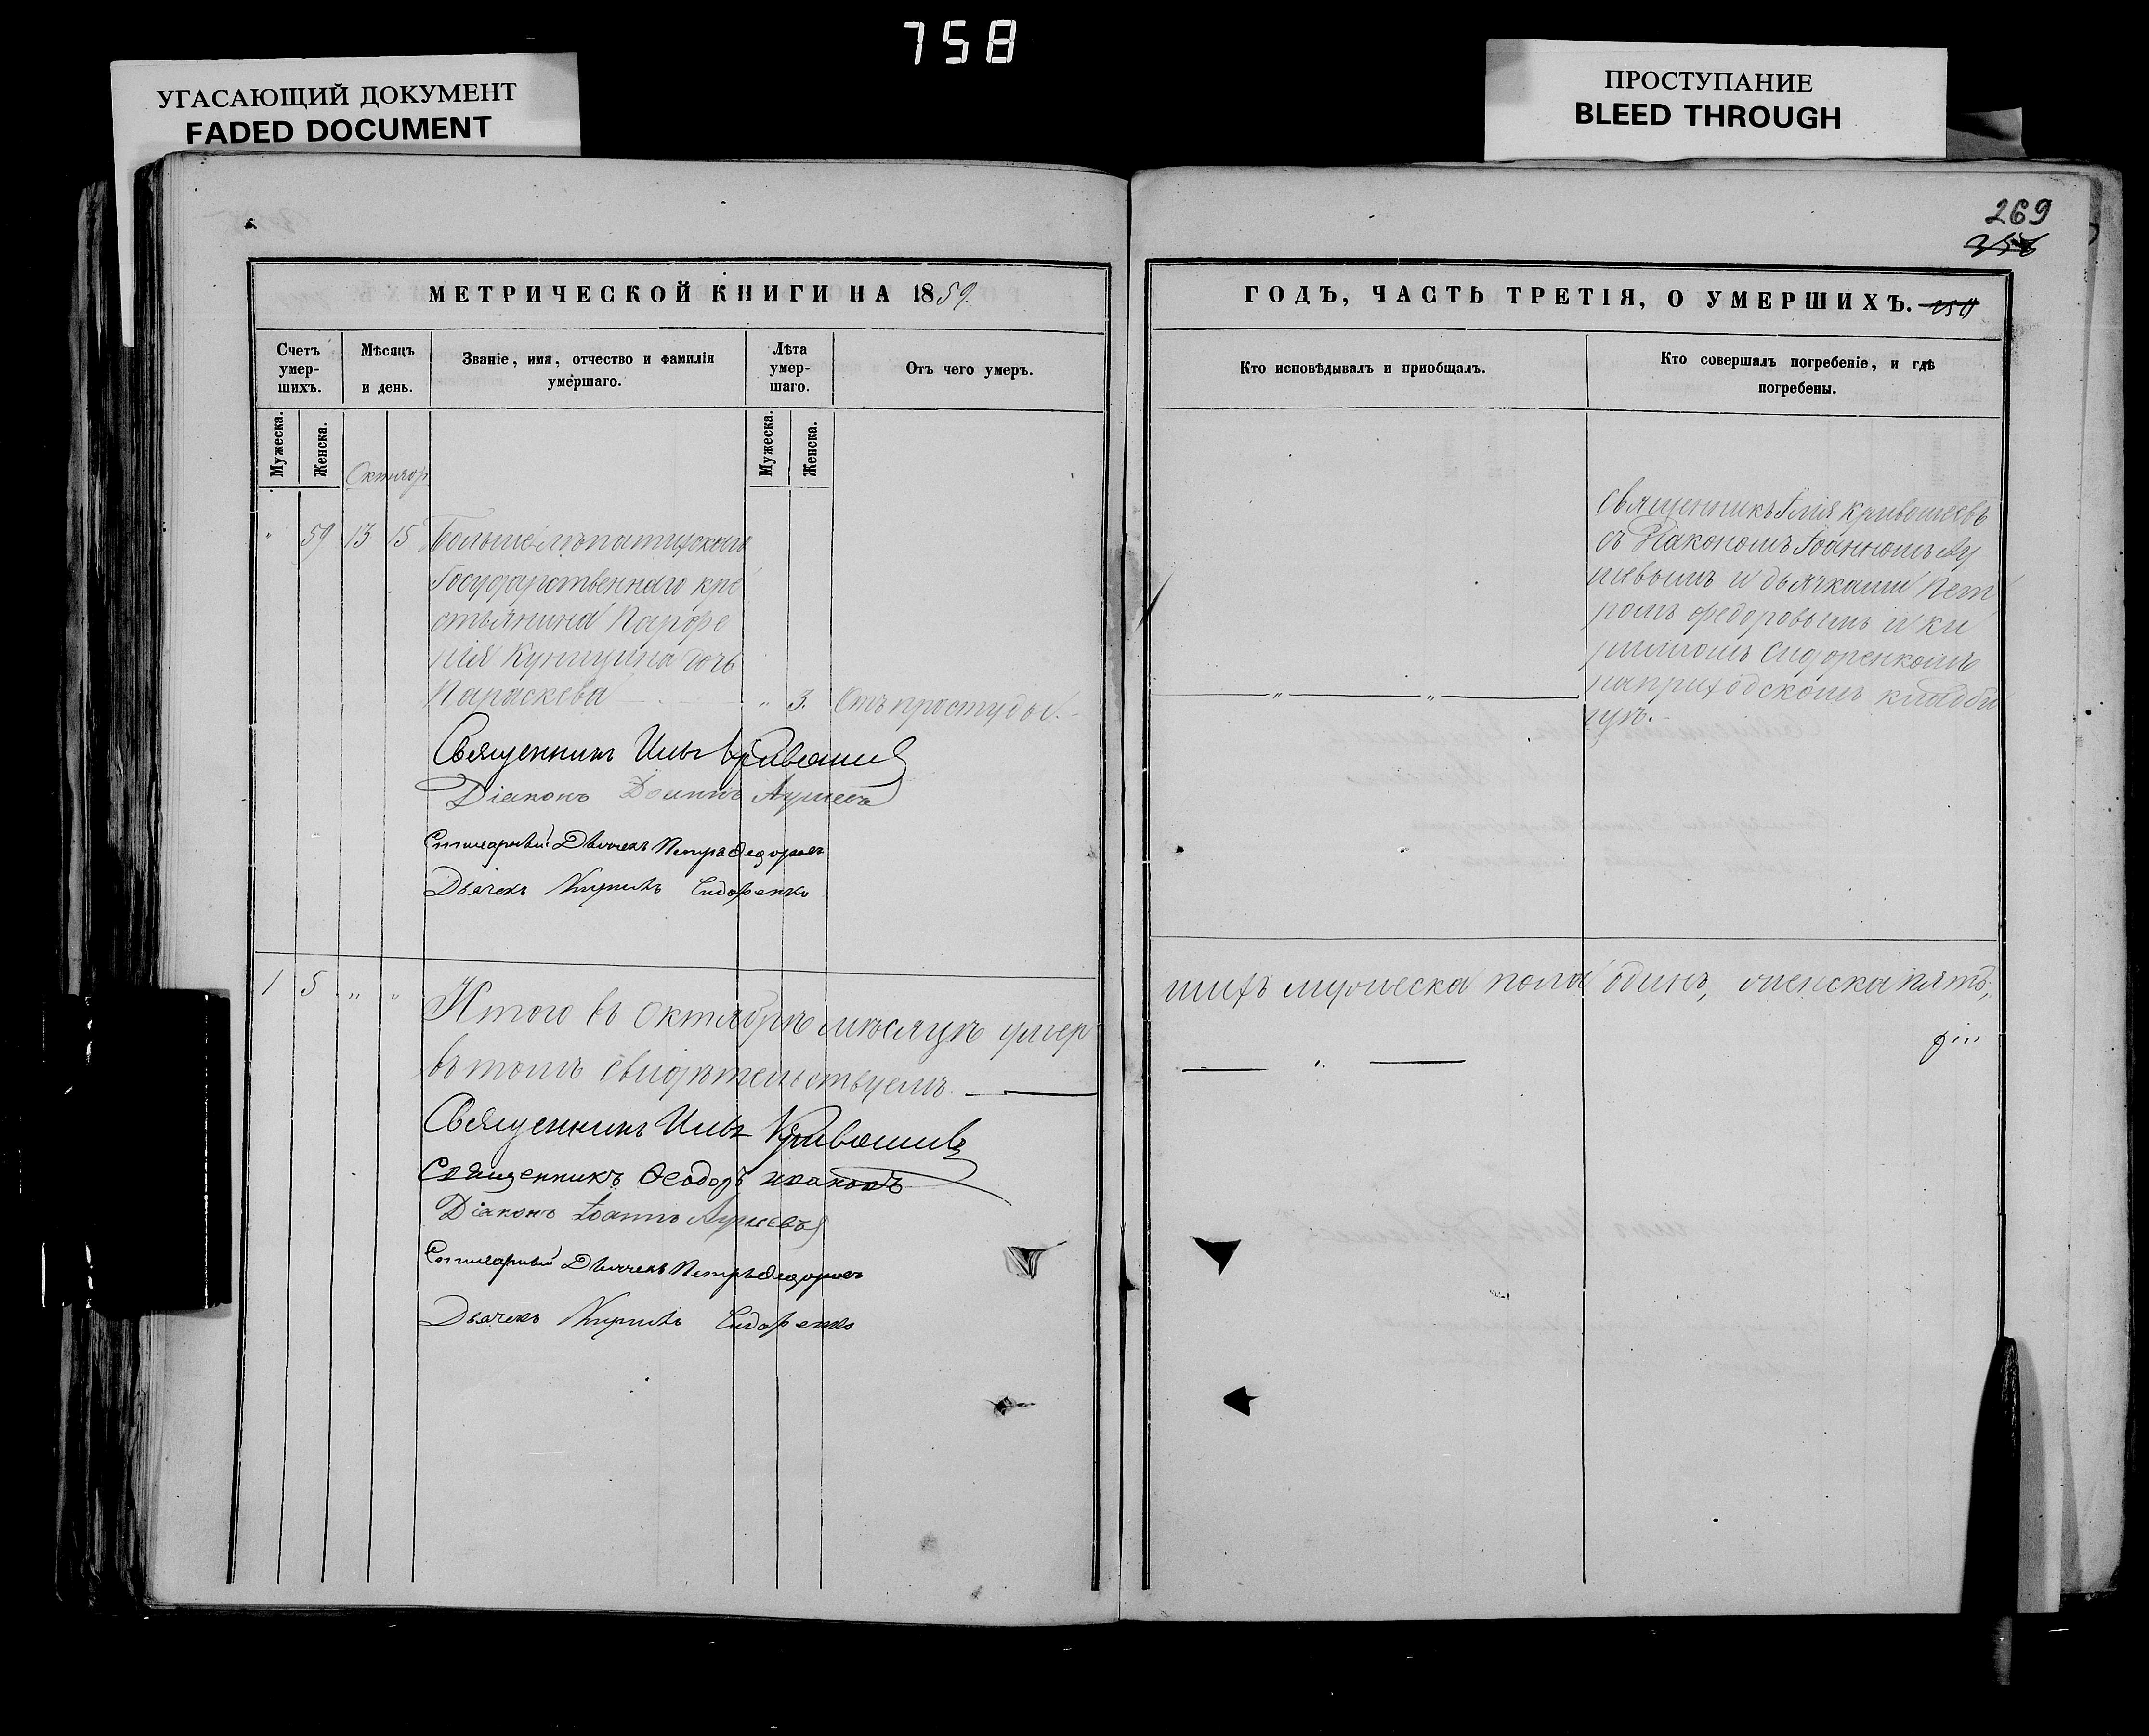 758
УГАСАЮЩИЙ ДОКУМЕНТ
FADED DOCUMENT
ПРОСТУПАНИЕ
BLEED THROUGH
269
МЕТРИЧЕСКОЙ КНИГИ НА 1859.
Счетъ умер-шихъ.
Мѣсяцъ и день.
Званіе, имя, отчество и фамилія умершаго.
Лѣта умер-шаго.
Отъ чего умеръ.
Мужеска.
Женска.
Мужеска.
Женска.
Октябр
" 59 13 15
Государственнаго кре
стьянина Парфе
нія дочь
Параскева " 3. Отъ простуды.
Священникъ Илья Кривошеев
Діаконъ Іоаннъ
Дьячекъ Петръ Федоровъ
Дьячекъ Кирилъ Сидоренко
1 5 " "
Итого въ Октябрѣ мѣсяцѣ умер
въ томъ свидѣтельствуемъ.
Священникъ Илья Кривошеев
Священникъ Ѳеодоръ
Діаконъ Іоаннъ
Дьячекъ Петръ Федоровъ
Дьячекъ Кирилъ Сидоренко
ГОДЪ, ЧАСТЬ ТРЕТІЯ, О УМЕРШИХЪ.
Кто исповѣдывалъ и приобщалъ.
Кто совершалъ погребеніе, и гдѣ погребены.
Священникъ Илія Кривошеевъ
съ Діакономъ Іоанномъ
и дьячками Пет
ромъ Федоровымъ и Ки
риломъ Сидоренкомъ
на приходскомъ кладби
щѣ.
шихъ мужеска пола одинъ, женска пять,